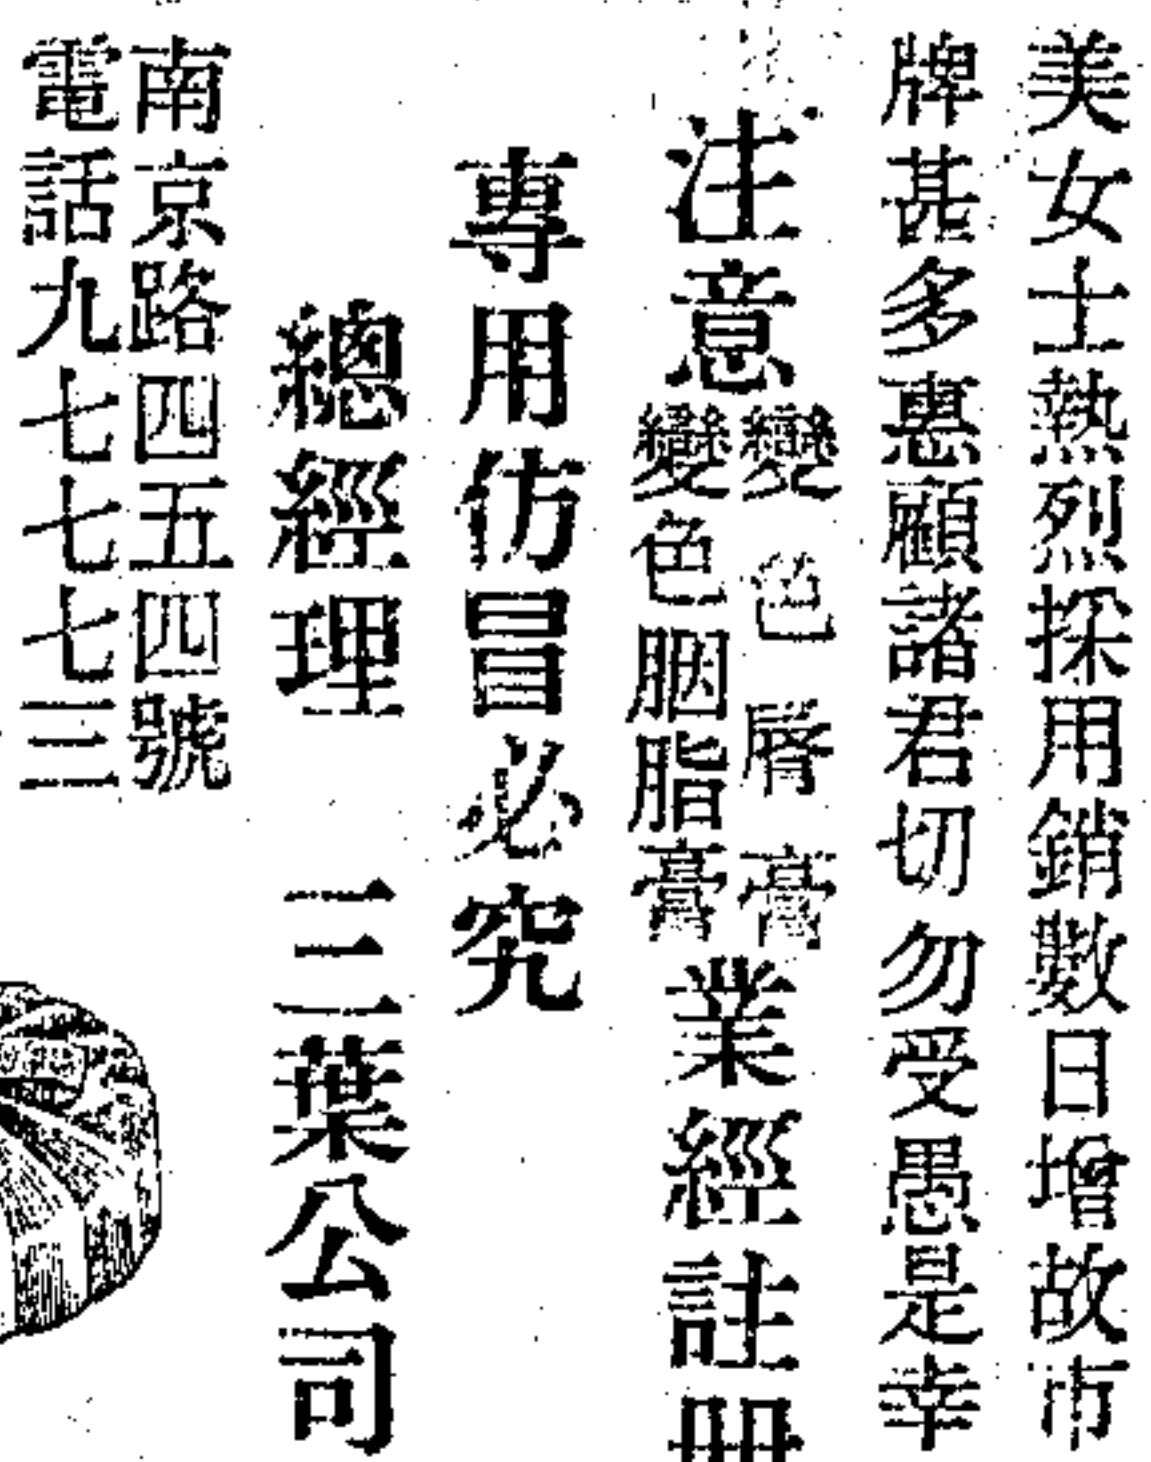 美女士熱烈採用銷數日增故市
牌甚多惠顧諸君切勿受愚是幸
注意
變色唇膏
變色胭脂膏
業經註冊
專用仿冒必究
總經理 三葉公司
南京路四五四號
電話九七七七三